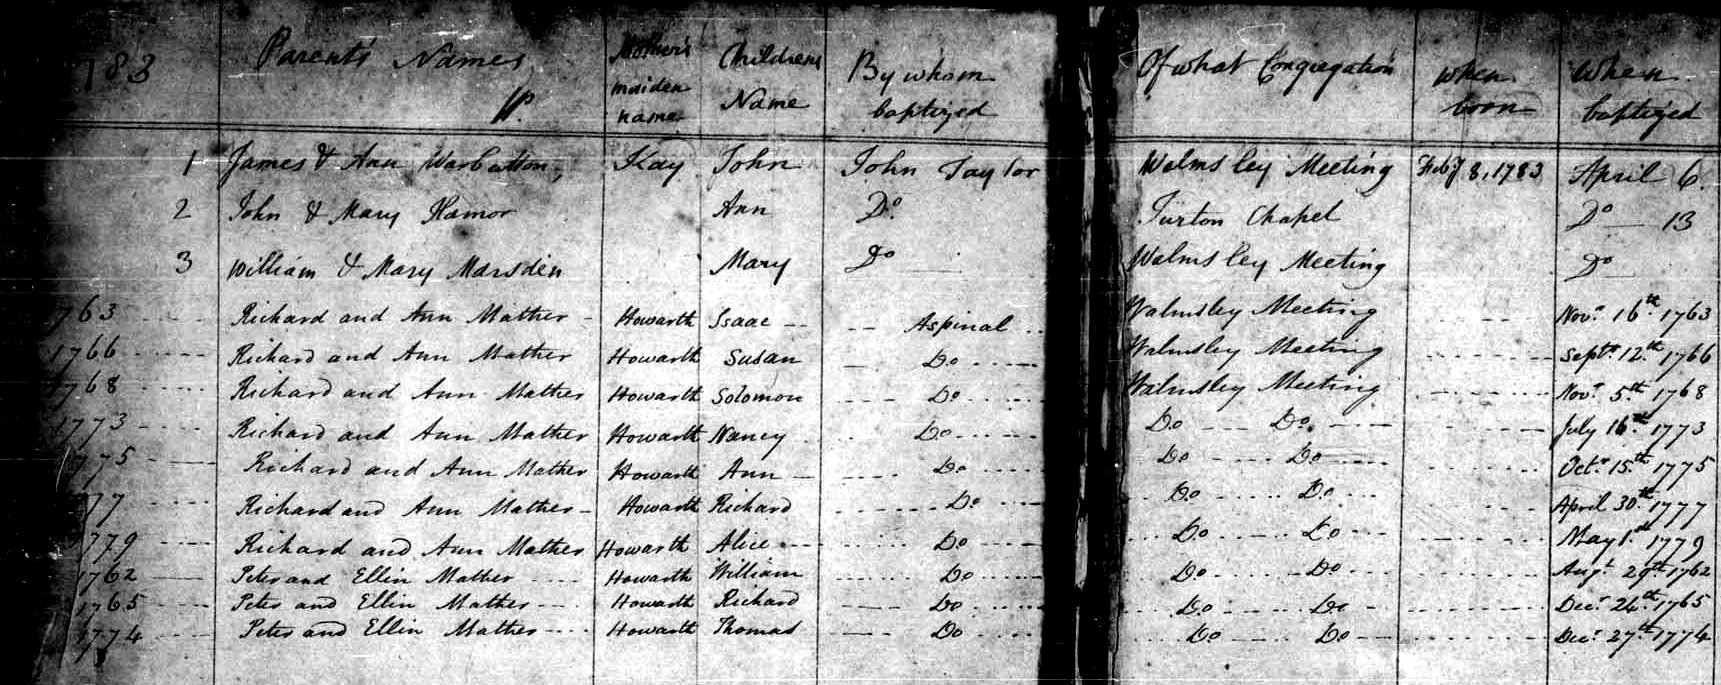 1783 Parent's Names Mother's maiden name Childrens Name By whom baptized Of what Congregation when born When baptized
1 James & Ann Warbutton, Kay John John Taylor Walmsley Meeting Feby 8, 1783 April 6.
2 John & Mary Hamor Ann Do. Turton Chapel Do — 13
3 William & Mary Marsden Mary Do Walmsley Meeting Do
1763 Richard and Ann Mather Howarth Isaac Aspinal Walmsley Meeting Novr. 16th 1763
1766 Richard and Ann Mather Howarth Susan Do Walmsley Meeting Septr. 12th 1766
1768 Richard and Ann Mather Howarth Solomon Do Walmsley Meeting Novr. 5th 1768
1773 Richard and Ann Mather Howarth Nancy Do Do Do. July 16th 1773
1775 Richard and Ann Mather Howarth Ann Do Do Do Octr. 15th 1775
77 Richard and Ann Mather Howarth Richard Do Do Do April 30th 1777
1779 Richard and Ann Mather Howarth Alice Do Do Do May 1st 1779
1762 Peter and Ellin Mather Howarth William Do Do Do Augt. 29th 1762
1765 Peter and Ellin Mather Howarth Richard Do Do Do Decr. 24th 1765
1774 Peter and Ellin Mather Howarth Thomas Do Do Do Decr. 27th 1774